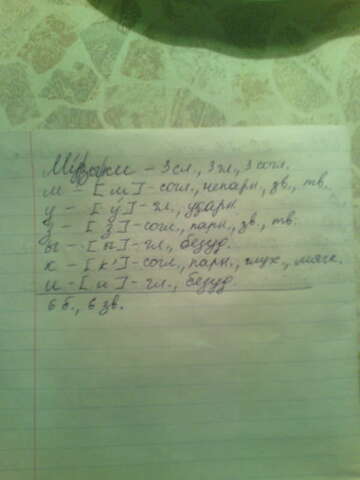 Му́зыки – 3 сл., 3 гл., 3 согл.
м – [м] – согл., непарн., зв., тв.
у – [у́] – гл., ударн.
з – [з] – согл., парн., зв., тв.
ы – [ы] – гл., безуд.
к – [к'] – согл., парн., глух., мягк.
и – [и] – гл., безуд.
6 б., 6 зв.